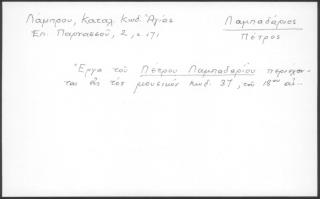 Λάμπρου, Καταλ. Κωδ. Ἁγίας
Επ. Παρνασσοῦ, 2, σ. 171
Λαμπαδάριος
Πέτρος
Ἔργα τοῦ Πέτρου Λαμπαδαρίου περιέχον-
ται εἰς τὸν μουσικὸν κωδ. 37, τοῦ 18ου αἰ.